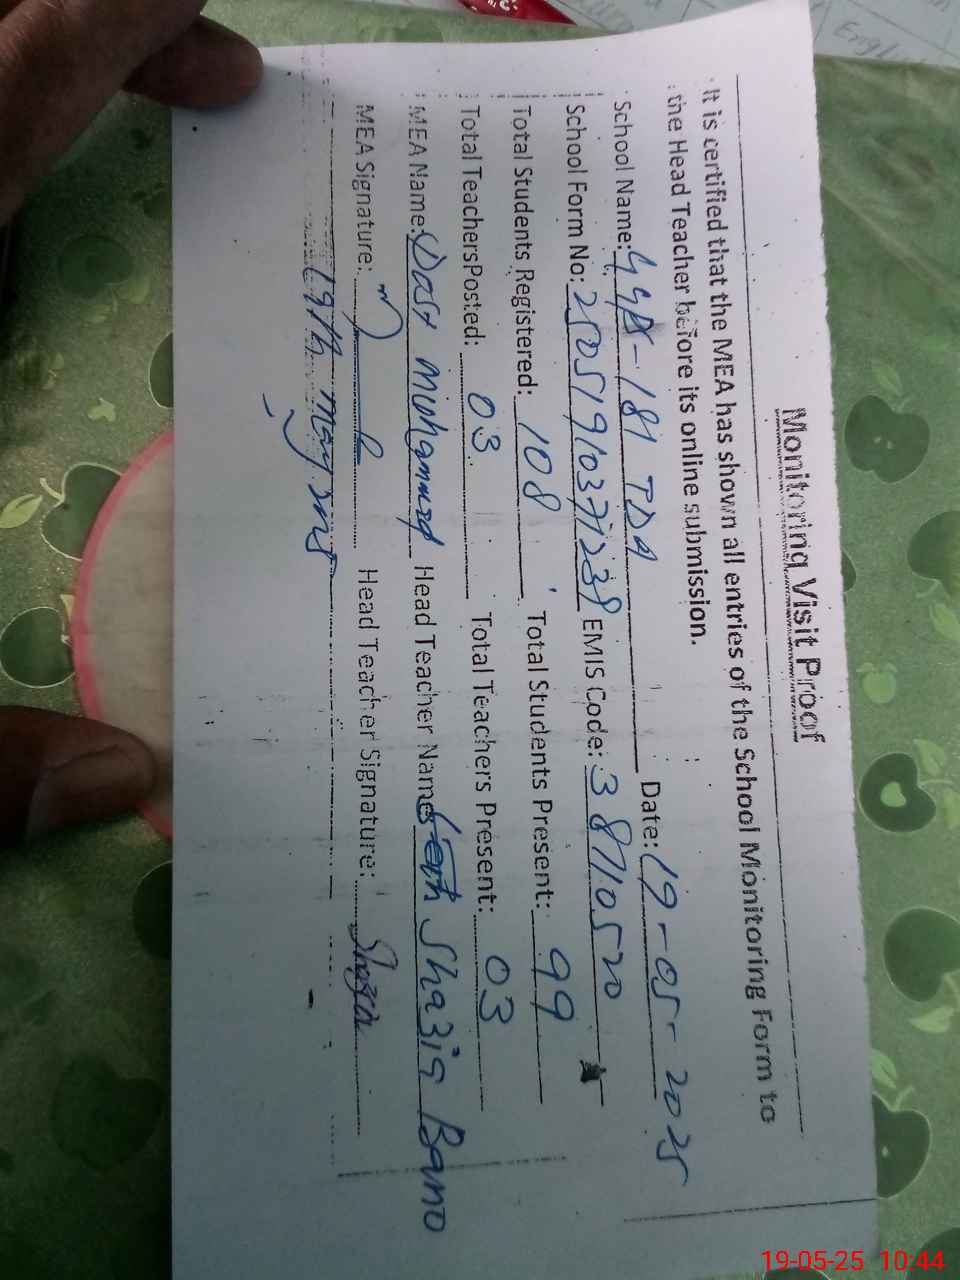 Monitoring Visit Proof
It is certified that the MEA has shown all entries of the School Monitoring Form to
the Head Teacher before its online submission.
School Name: GGPS-181 TDA Date: 19-05-2025
School Form No: 25051910371238 EMIS Code: 38710520
Total Students Registered: 108 Total Students Present: 99
Total TeachersPosted: 03 Total Teachers Present: 03
MEA Name: Dost Muhammad Head Teacher Name Shazia Bano
MEA Signature: Head Teacher Signature: Shazia
19th May 2025
19-05-25 10:44